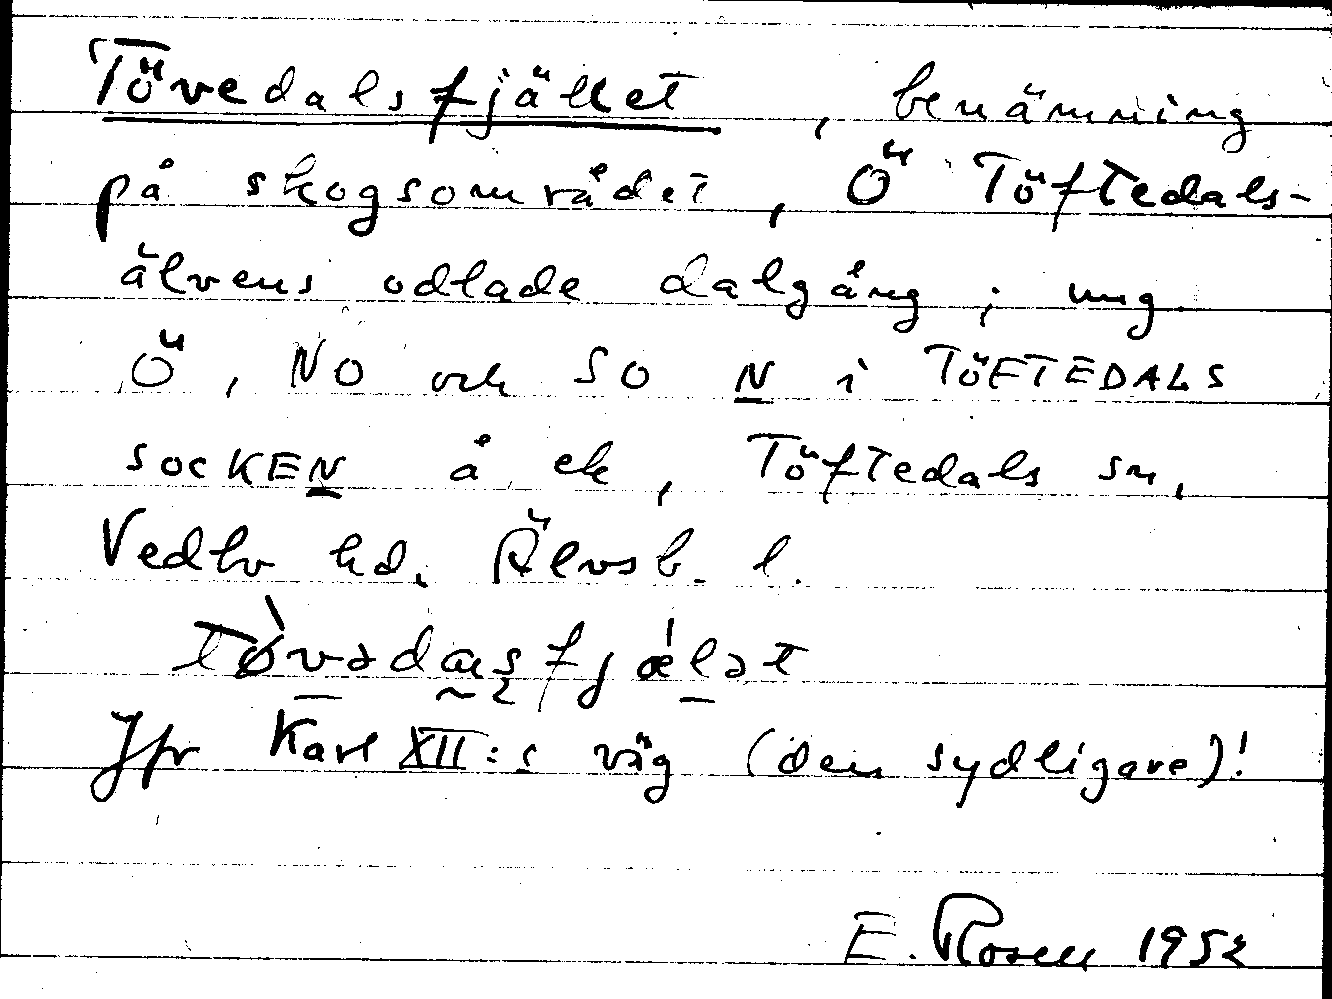 Tövedalsfjället, benämning
på skogsområdet, Ö Töftedals-
älvens odlade dalgång; ung.
Ö, NO och SO N i TÖFTEDALS
SOCKEN å ek, Töftedals sn,
Vedbo hd. Älvsb. l.
Jfr Karl XII:s väg (den sydligare)!
E. Rosell 1952